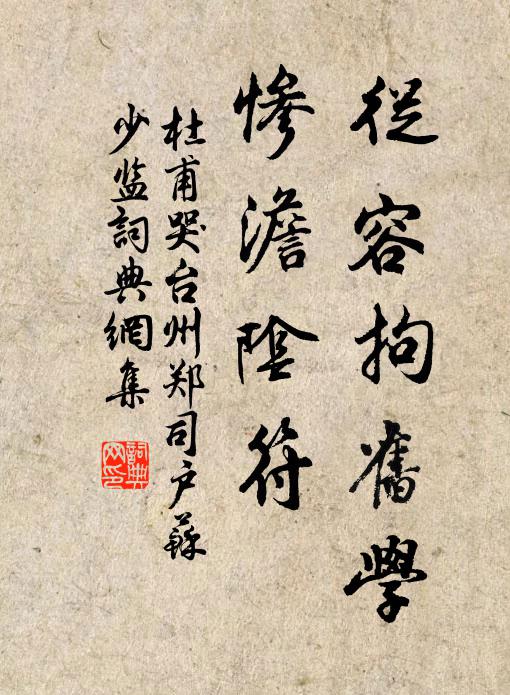 從容拘舊學
慘澹陰符
杜甫哭台州郑司户蘇
少监詞典網集
詞典
网印